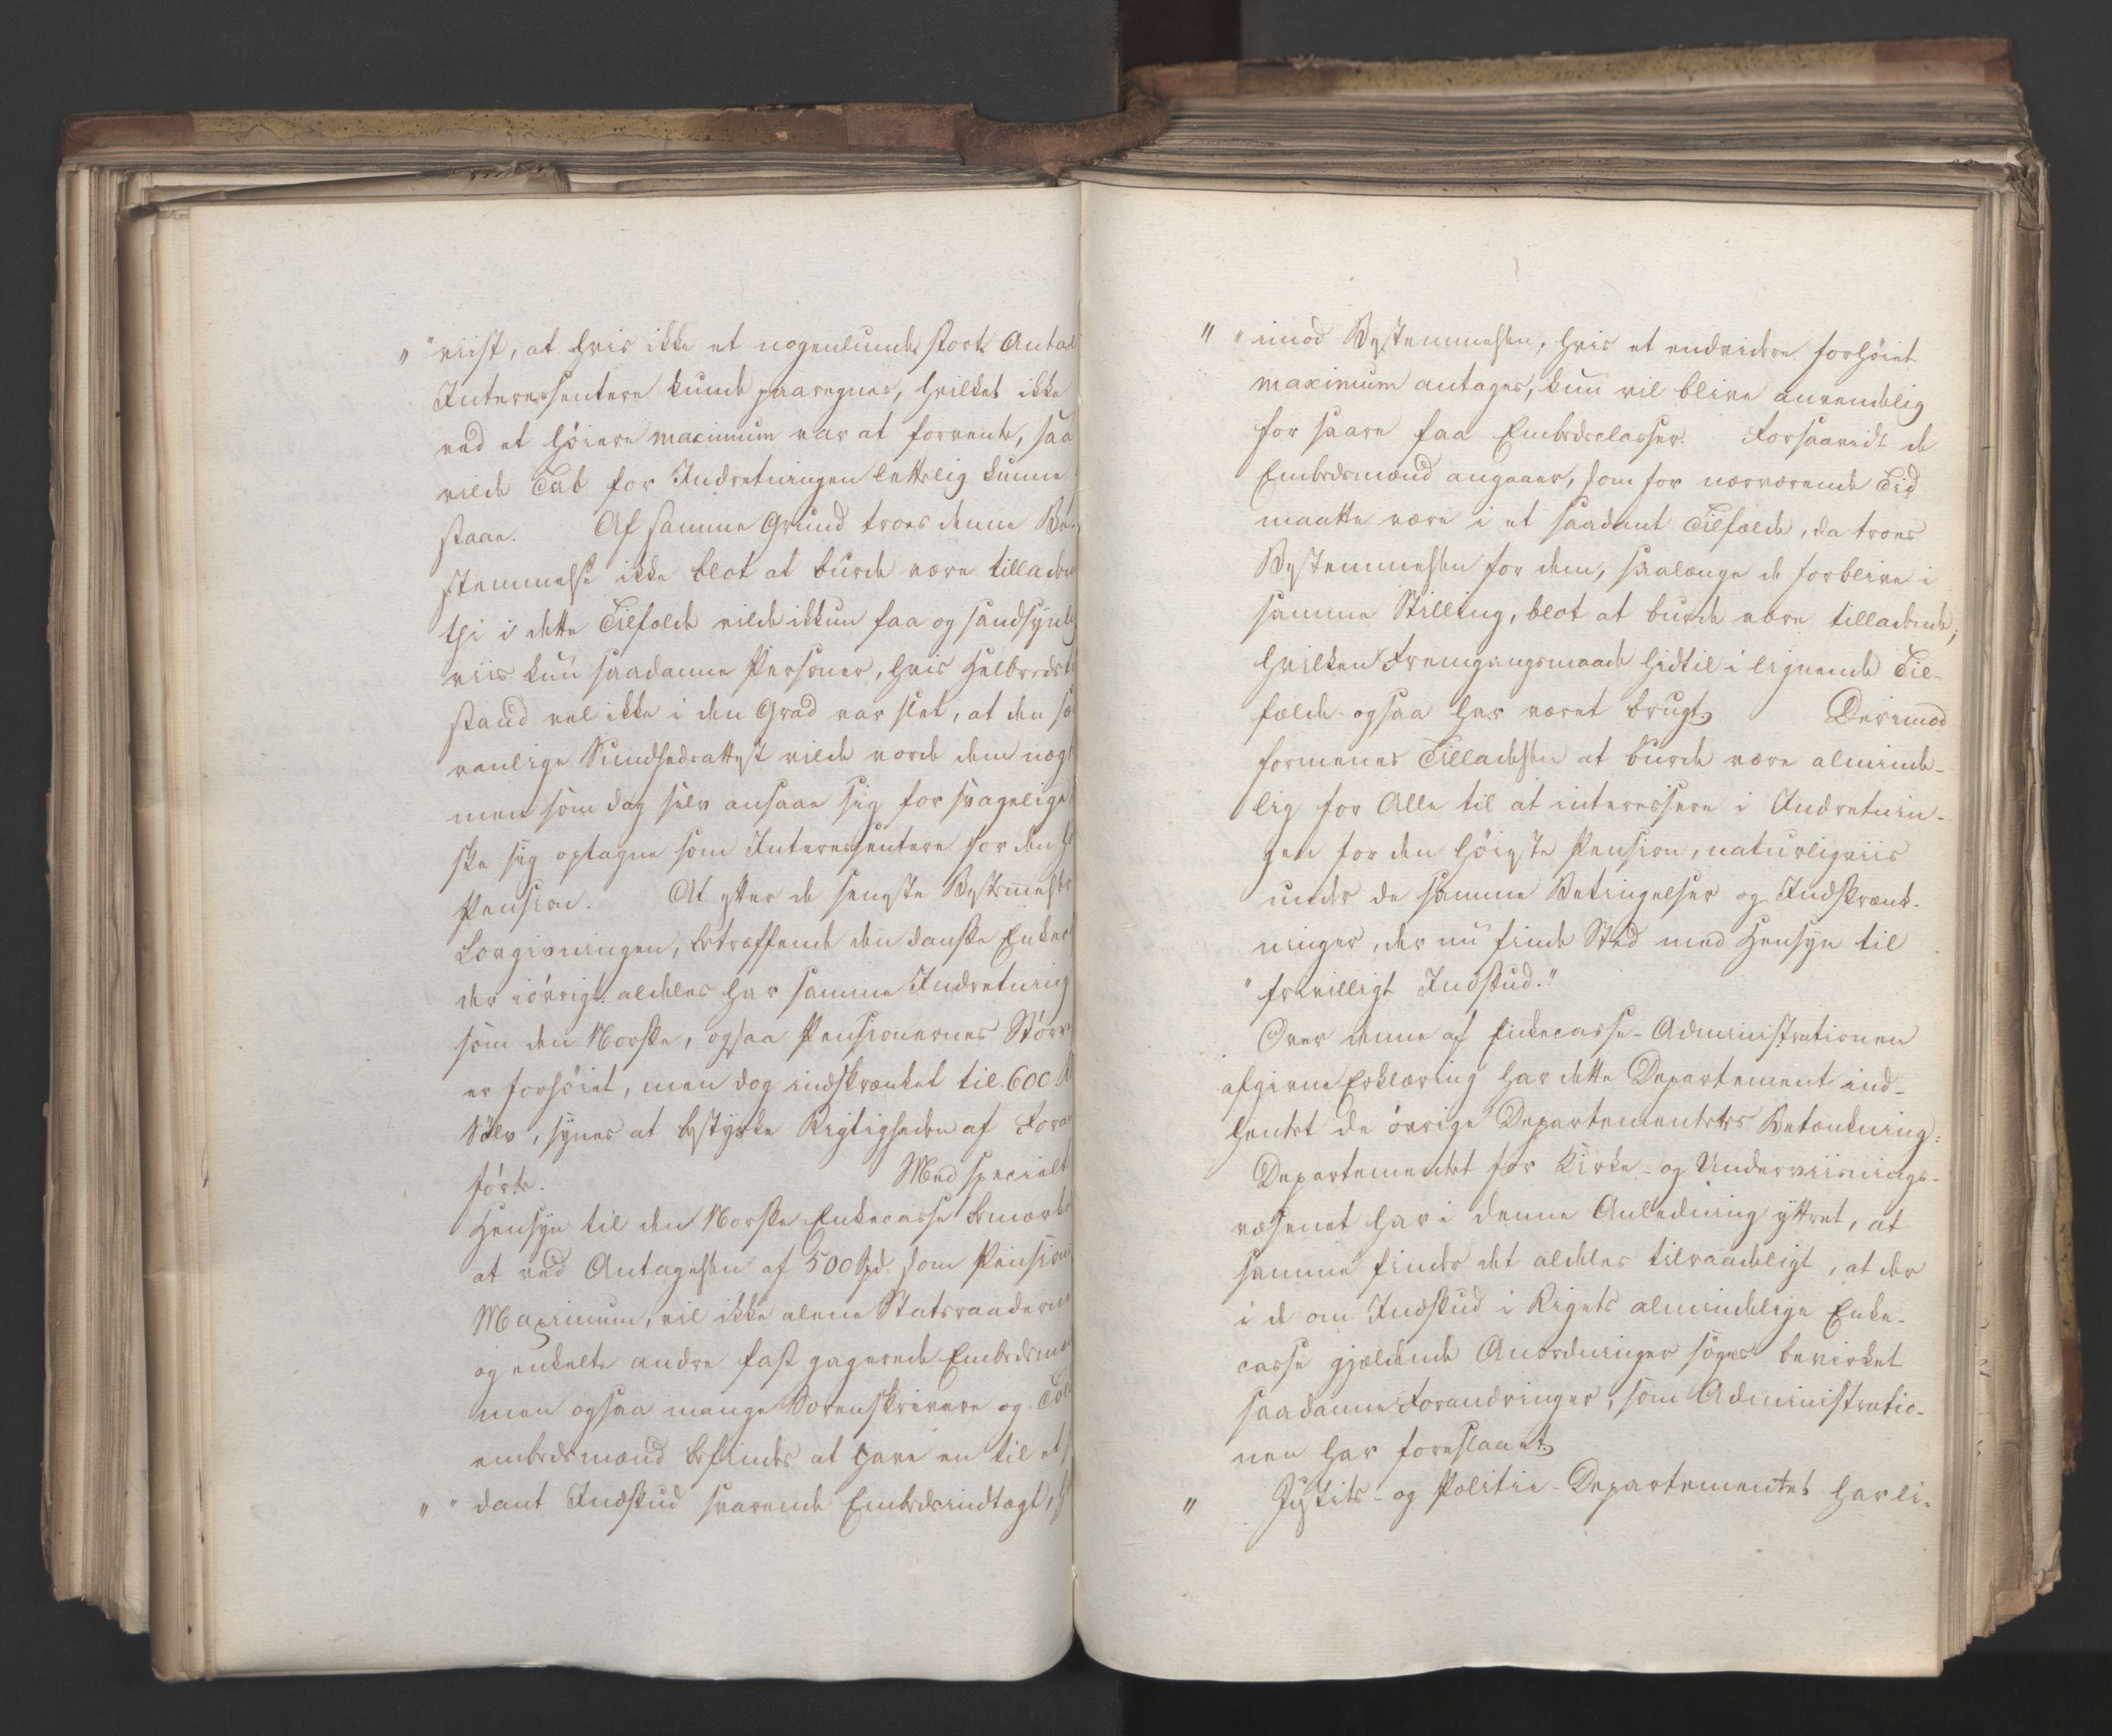 " "viist, at hvis ikke et nogenlunde stort Antal
Interessentere kunde paaregnes, hvilket ikke
ved et höiere maximum var at forvente, saa
vilde Tab for Indretningen lettelig kunne
staae. Af samme Grund troes denne Be-
stemmelse ikke blot at burde være tilladen
thi i dette Tilfælde vilde ikkun faa og sandsynlig
viis kun saadanne Personer, hvis Helbredst
stand vel ikke i den Grad var slet, at den sæ
vanlige Sundhedsattest vilde vorde dem nægt
men som dog selv ansaae sig for svagelige
ske sig optagne som Interessentere for den h
Pension. At efter de seneste Bestemmelse
Lovgivningen, betræffende den danske Enke
der iövrigt aldeles har samme Indretning
som den Norske, ogsaa Pensionernes Störr
er forhöiet, men dog indskrænket til 600 R
Sölv, synes at bestyrke Rigtigheden af Fora
förte. Med specielt
Hensyn til den Norske Enkecasse bemærke
at ved Antagelsen af 500 Spd. som Pension
Maximum, vil ikke alene Statsraaderne
og enkelte andre fast gagerede Embedsmæ
men ogsaa mange Sorenskrivere og Told
embedsmænd befindes at have en til et
" " dant Indskud svarende Embedsindtægt, h
" " imod Bestemmelsen, hvis et endvidere forhöiet
maximum antages, kun vil blive anvendelig
for saare faa Embedsclasser. Forsaavidt de
Embedsmænd angaaer, som for nærværende Tid
maatte være i et saadant Tilfælde, da troes
Bestemmelsen for dem, saalænge de forblive i
samme Stilling, blot at burde være tilladende,
hvilken Fremgangsmaade hidtil i lignende Til-
fælde ogsaa har været brugt. Derimod
formenes Tilladelsen at burde være alminde-
lig for Alle til at interessere i Indretnin-
gen for den höieste Pension, naturligviis
under de samme Betingelser og Indskrænk-
ninger, der nu finde Sted med Hensyn til
" frivilligt Indskud."
Over denne af Enkecasse-Administrationen
afgivne Erklæring har dette Departement ind-
hentet de övrige Departementers Betænkning:
Departementet for Kirke- og Underviisnings-
væsenet har i denne Anledning yttret, at
samme finder det aldeles tilraadeligt, at der
i de om Indskud i Rigets almindelige Enke-
casse gjældende Anordninger söges bevirket
saadanne Forandringer, som Administratio-
nen har foreslaaet.
" Justits- og Politie-Departementet har li-